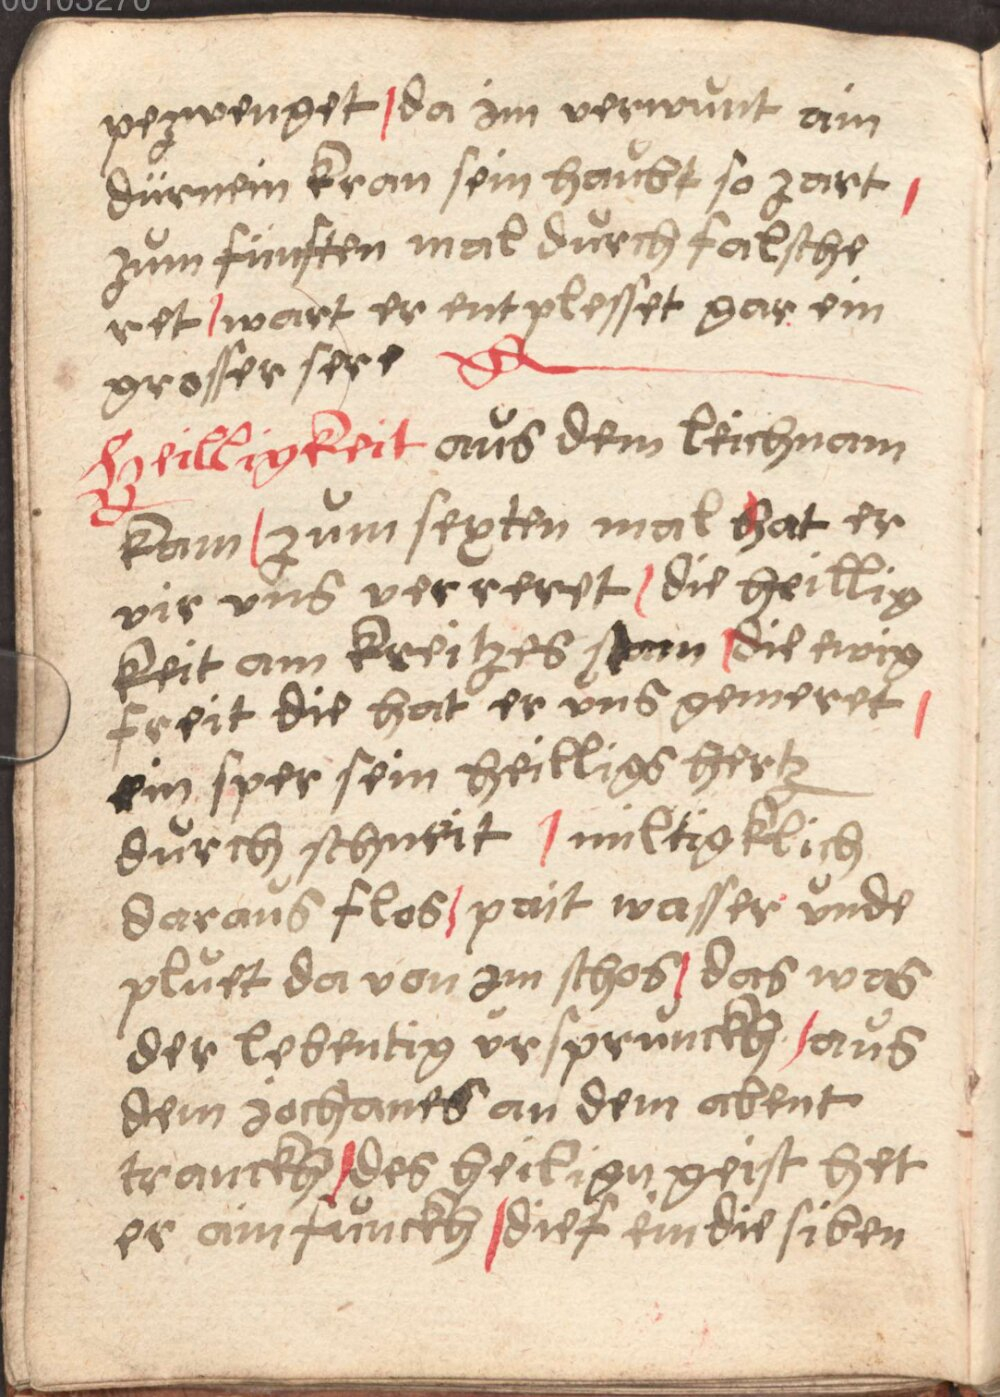 00103270
pezwenget / da im verwunt ain
dürnein kran sein haubt so zart /
zum fünften mal durch falsche
ret / wart er entplesset gar ein
grosser sere
Heilligkeit aus dem leichnam
kam / zum sexten mal hat er
vir vns verreret / die heillig
keit am kreitzes stam / die ewig
freit die hat er vns gemeret /
ein sper sein heilligs hertz
durch schneit / miltigklich
daraus flos / pait wasser vnde
pluet da von im schos / das was
der lebentig vrsprunckh / aus
dem iochanes an dem abent
tranckh / des heilign geist het
er ain funckh / dief ein die siben